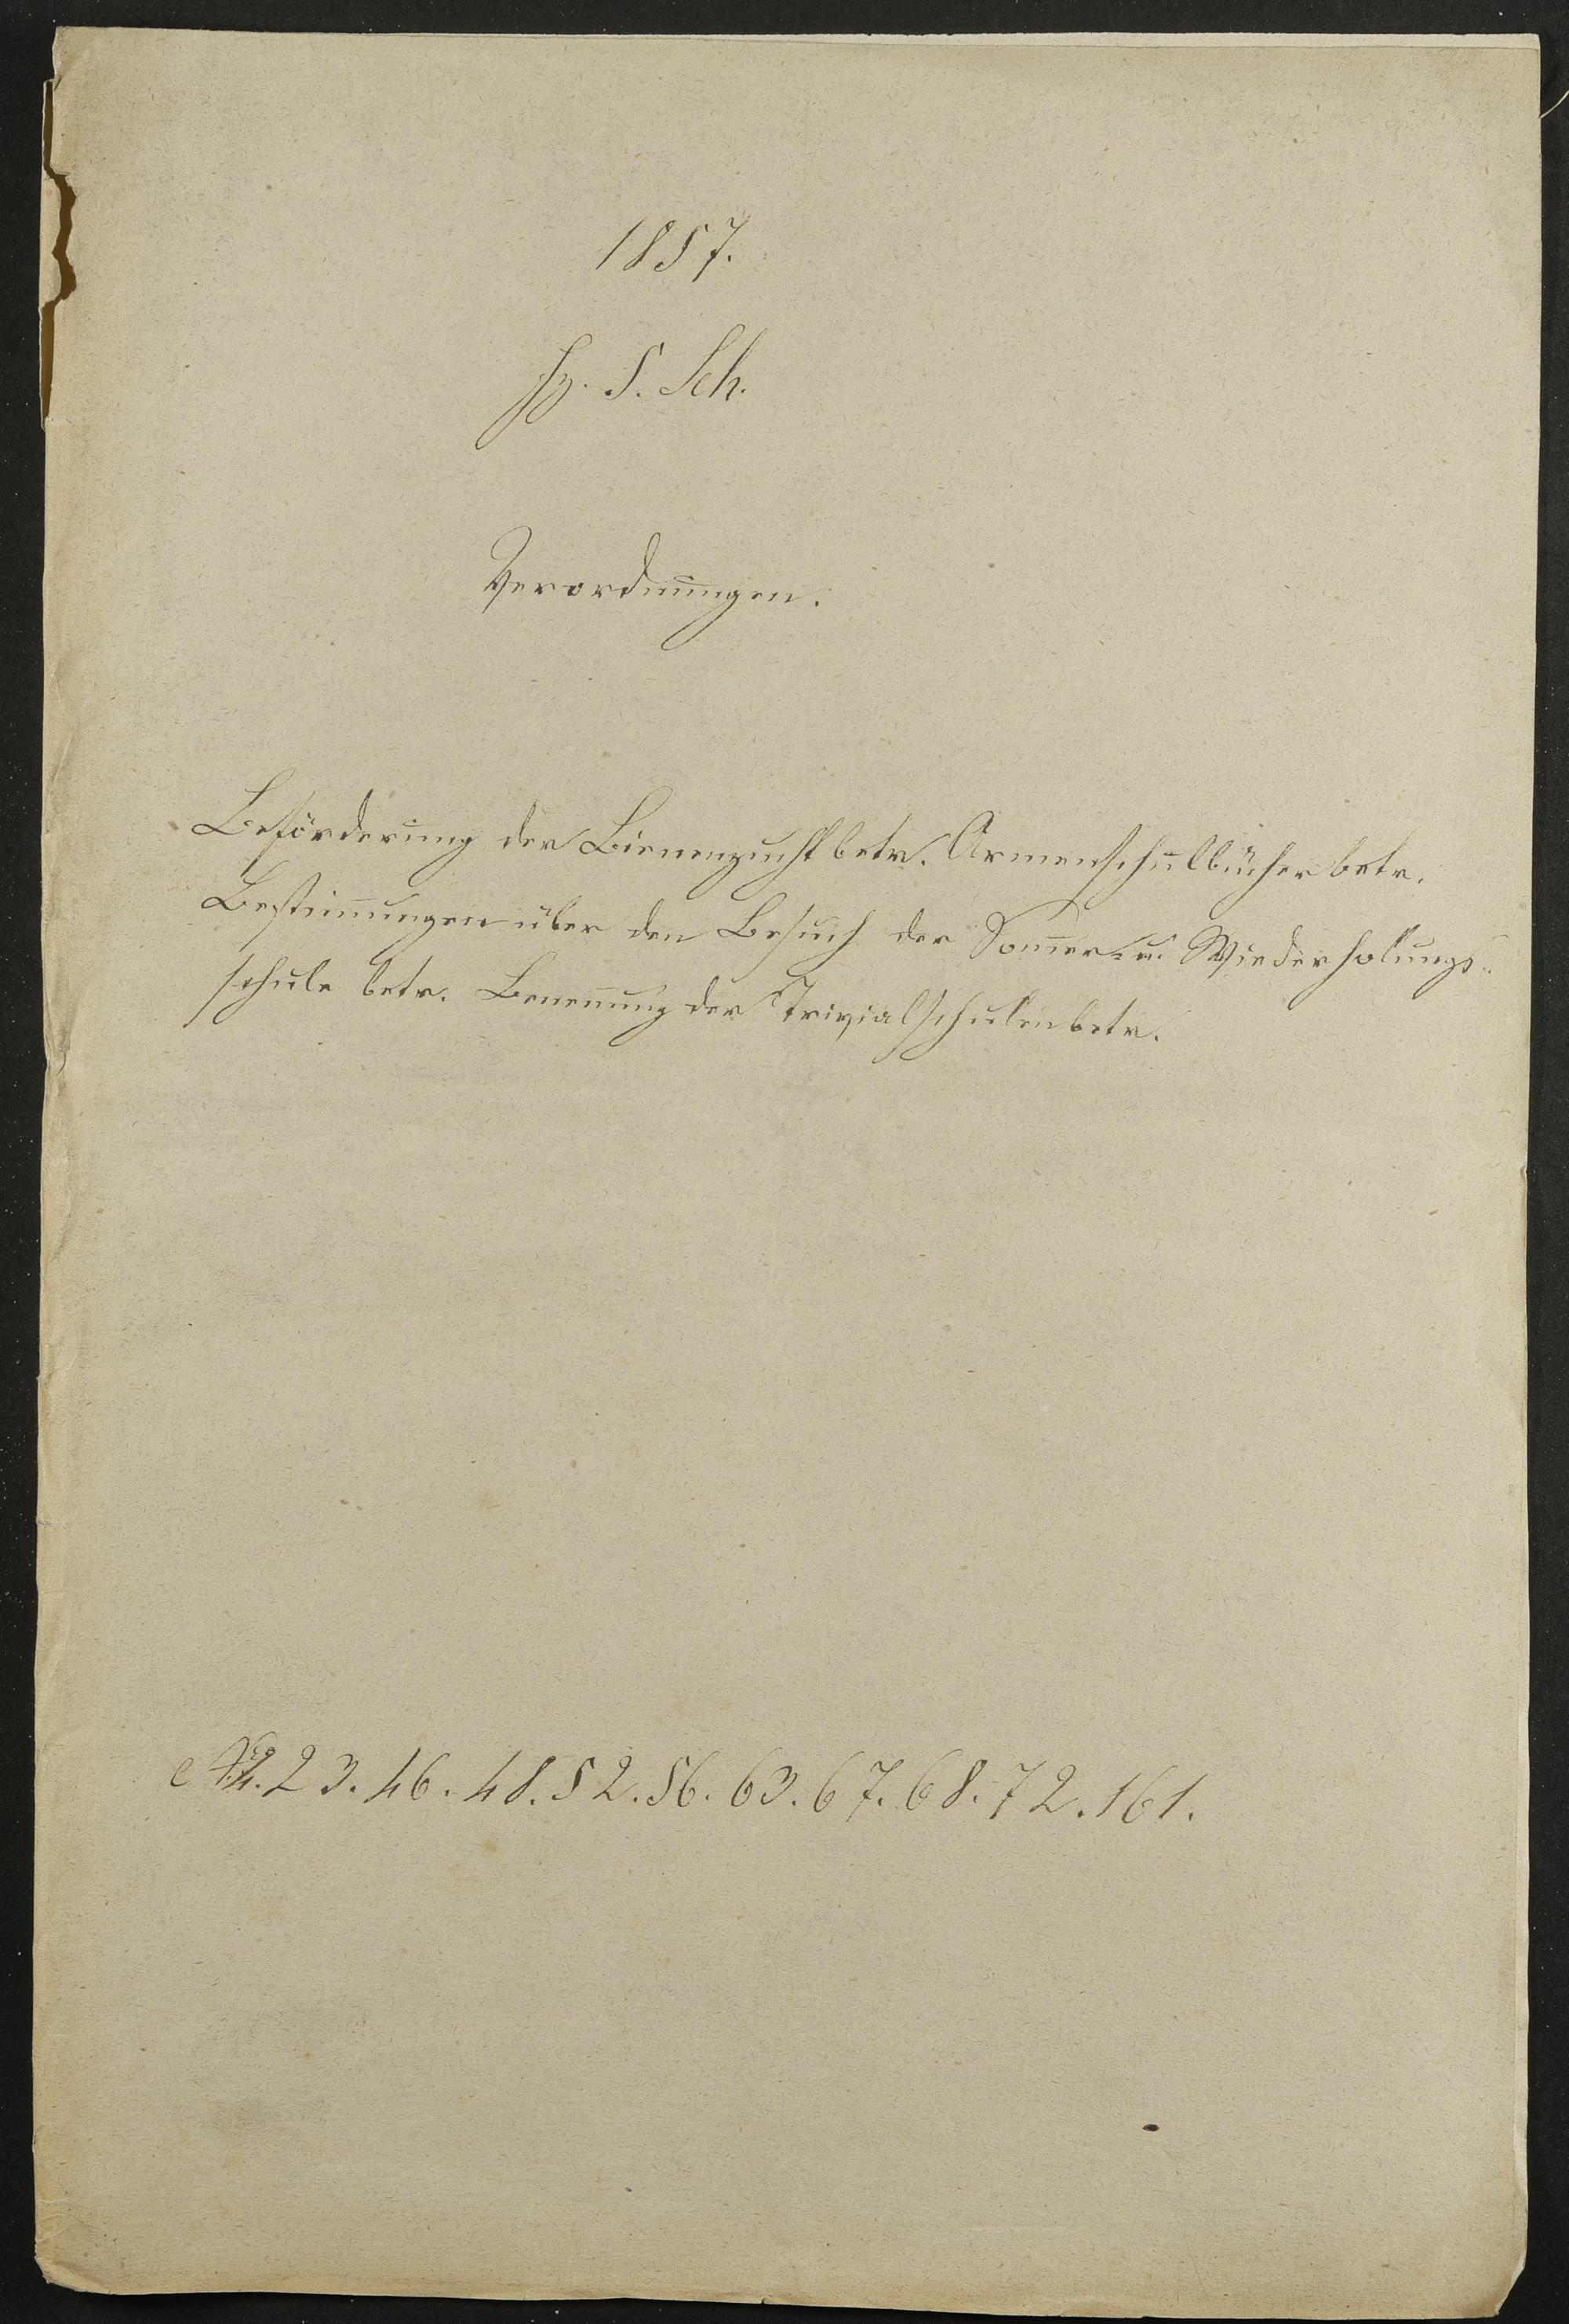 1857.
S. Sch.
Verordnungen.
Beförderung der Bienenzucht betr. Armenschulbücher betr.
Bestim̅ungen über den Besuch der Som̅er- u. Wiederholungs-
schule betr. Benen̅ung der Trivialschulen betr.
23. 46. 48. 52. 56. 63. 67. 68. 72. 161.